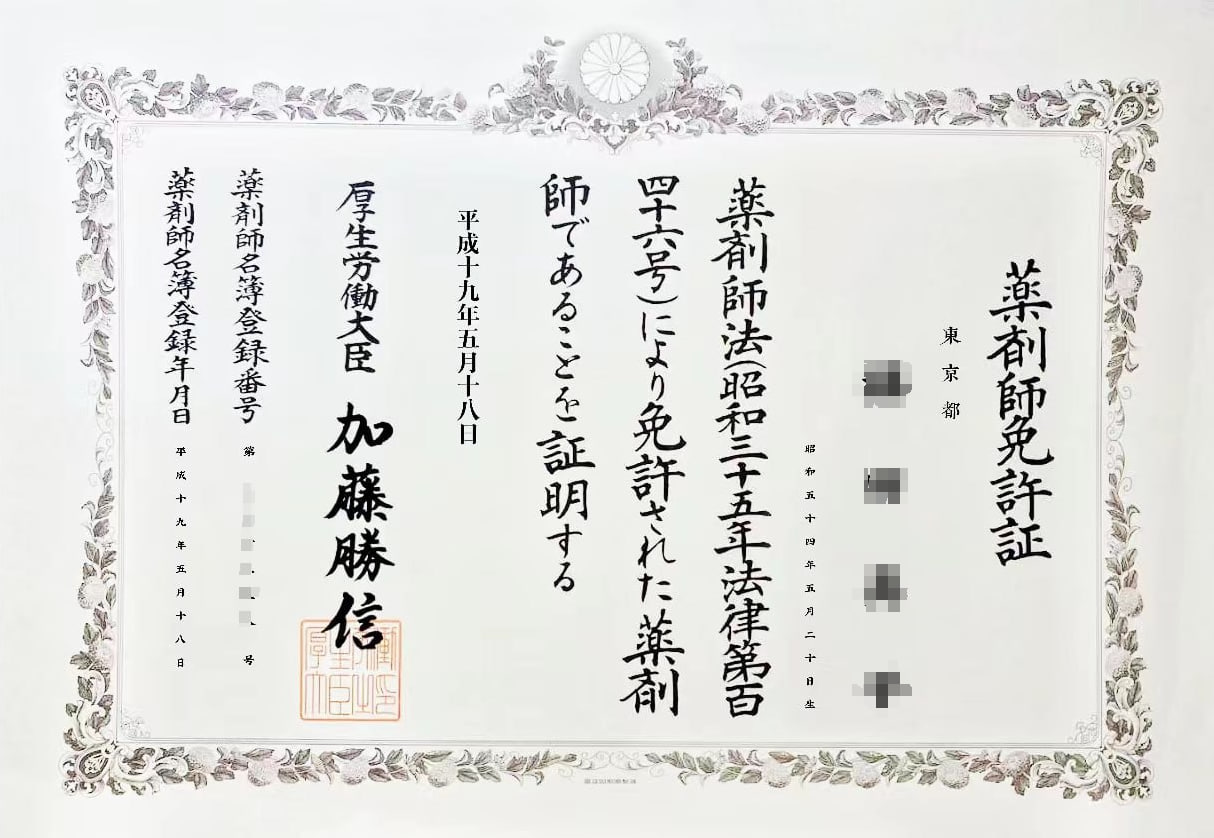 薬剤師免許証
東京都
昭和五十四年五月二十日生
薬剤師法(昭和三十五年法律第百
四十六号)により免許された薬剤
師であることを証明する
平成十九年五月十八日
厚生労働大臣 加藤勝信
薬剤師名簿登録番号 第 号
薬剤師名簿登録年月日 平成十九年五月十八日